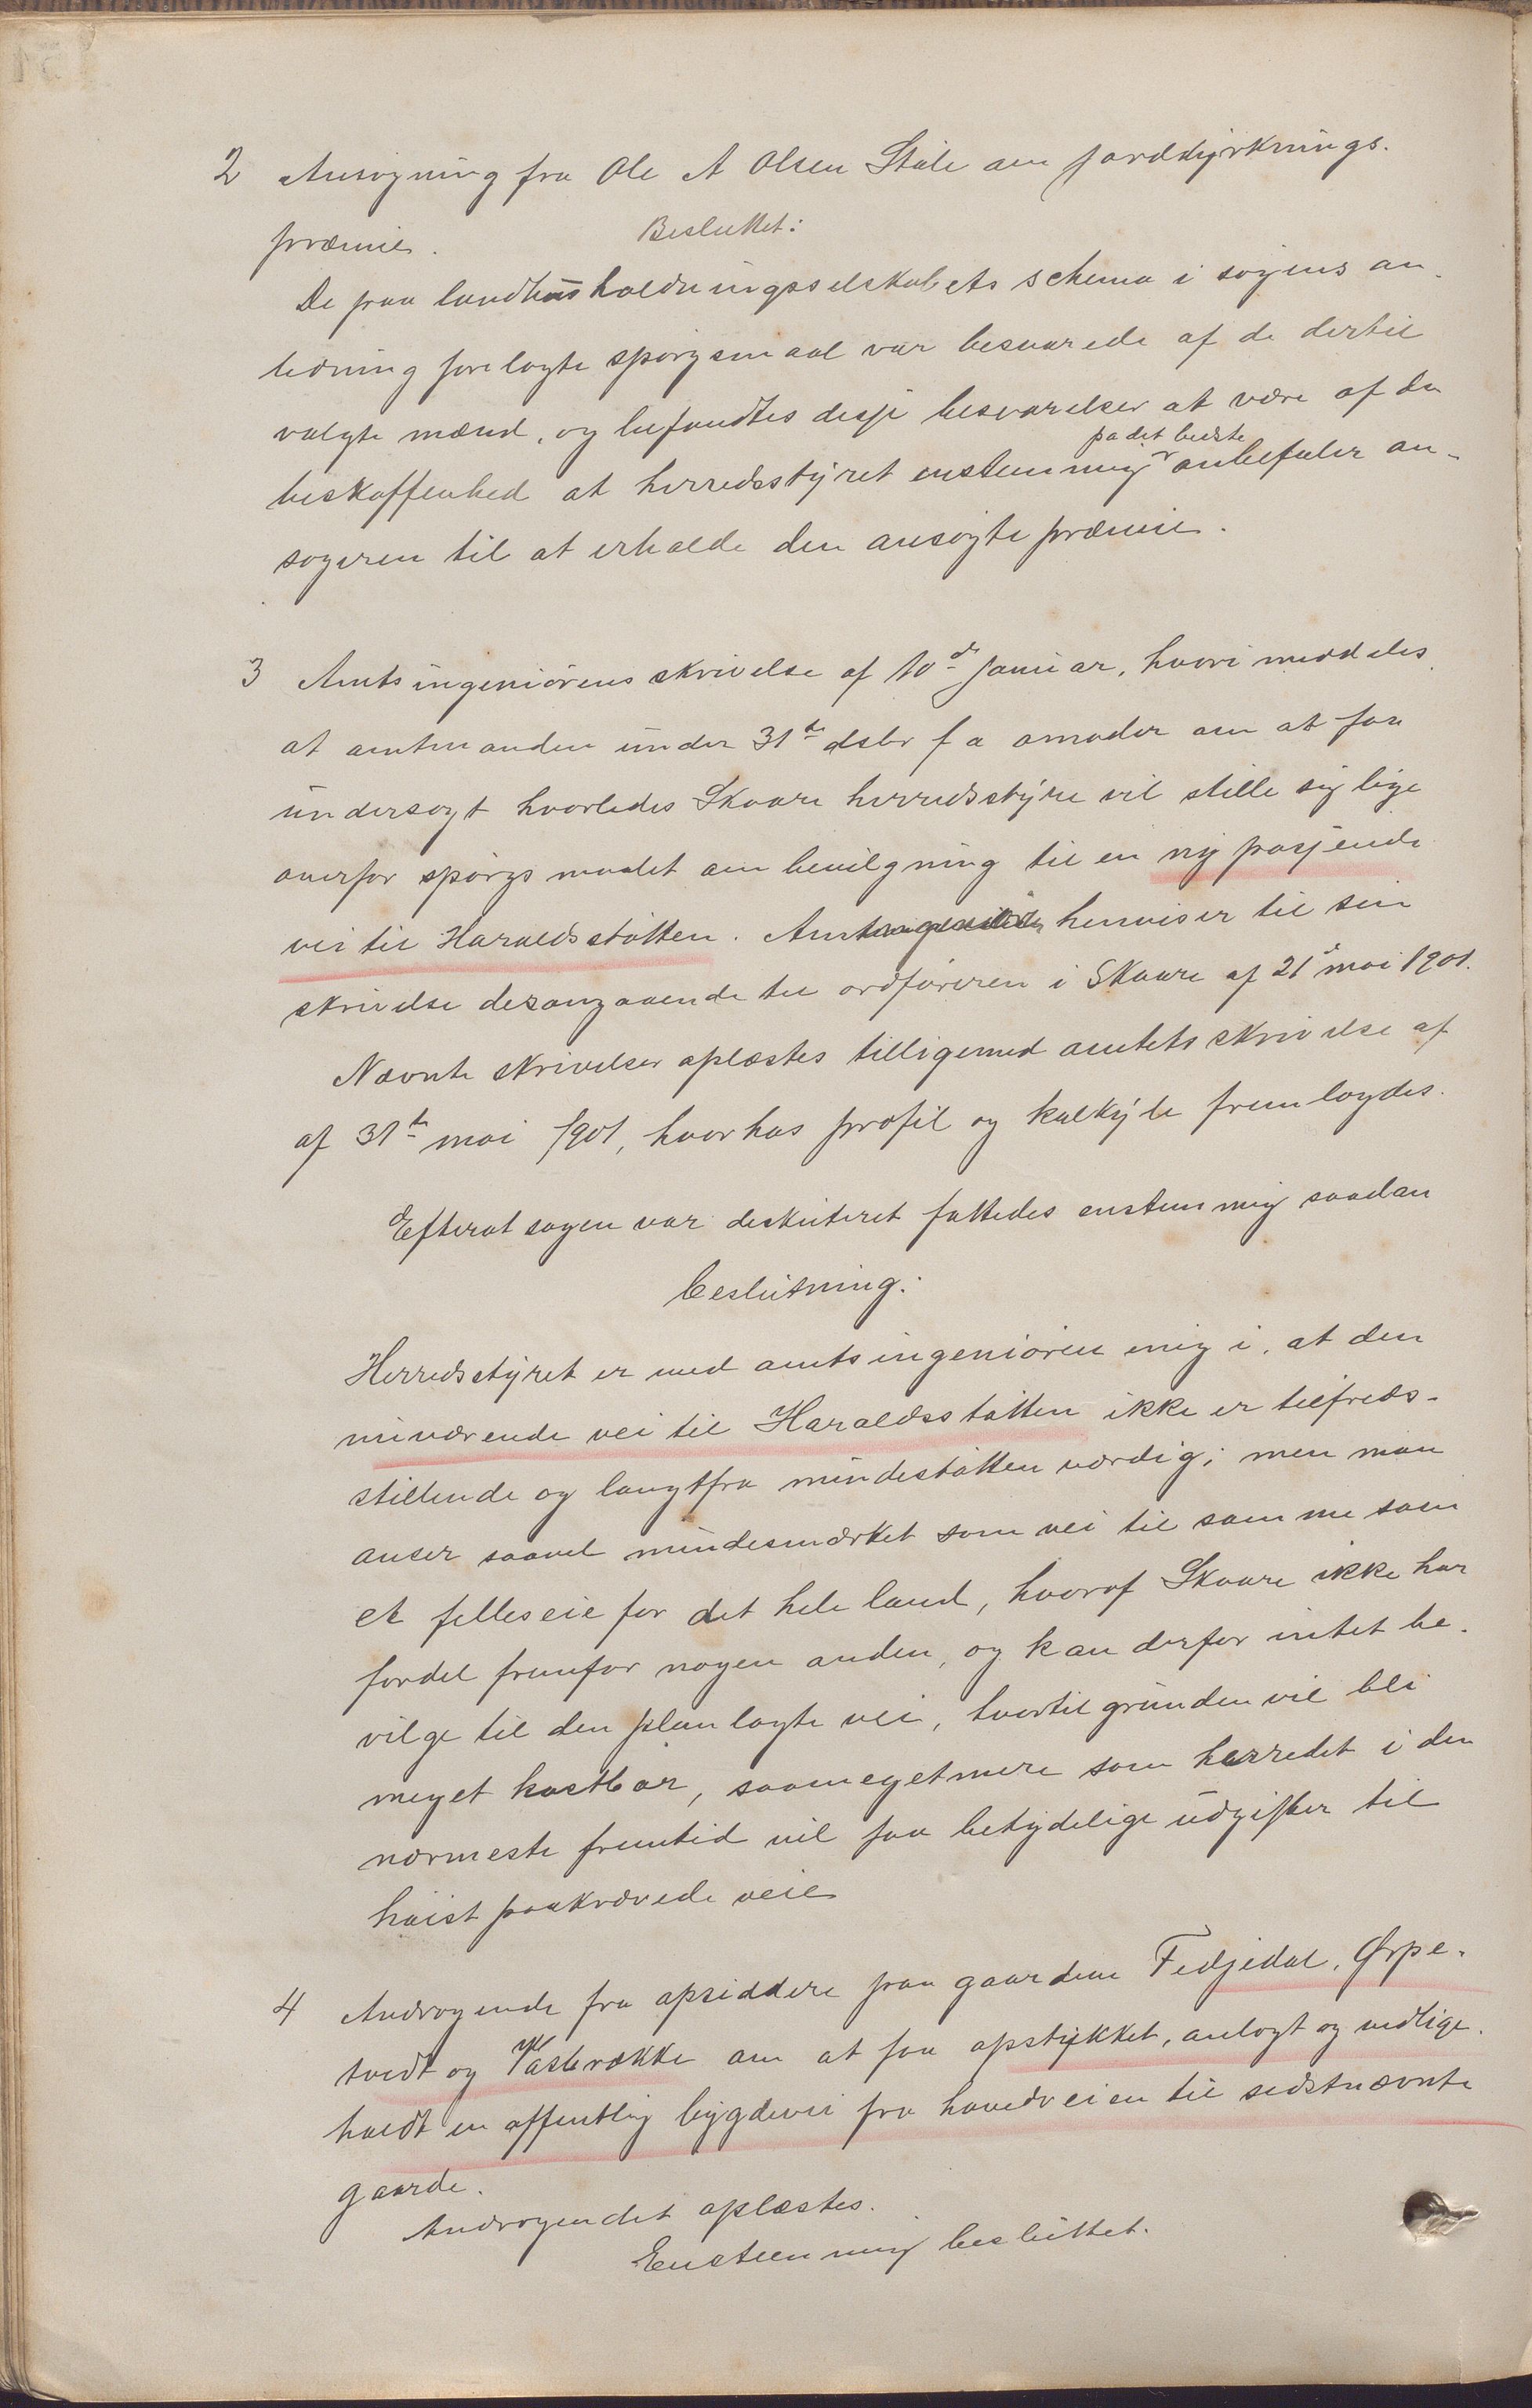 2 Ansøgning fra Ole A Olsen Stole om jorddyrknings-
præmie.
Besluttet:
De paa landhusholdningsselskabets schema i sagens an-
ledning forelagte spørgsmaal var besvarede af de dertil
valgte mænd, og befandtes disse besvarelser at være af den
beskaffenhed at herredsstyret enstemmig pa det bedste anbefaler an-
søgeren til at erholde den ansøgte præmie.
3 Amtsingeniørens skrivelse af 10de Januar, hvori meddeles
at amtmanden under 31te dsbr f a anmoder om at faa
undersøgt hvorledes Skaare herredsstyre vil stille sig lige
overfor spørgsmaalet om bevilgning til en ny passende
vei til Haraldsstøtten. Amtsingeniøren henviser til sin
skrivelse desangaaende til ordføreren i Skaare af 21de mai 1901.
Nævnte skrivelser oplæstes tilligemed amtets skrivelse af
af 31te mai 1901, hvorhos profil og kalkyle fremlagdes.
Efterat sagen var diskuteret fattedes enstemmig saadan
beslutning:
Herredsstyret er med amtsingeniøren enig i, at den
nuværende vei til Haraldsstøtten ikke er tilfreds-
stillende og langtfra mindestøtten værdig; men man
anser saavel mindesmærket som vei til samme som
et felleseie for det hele land, hvoraf Skaare ikke har
fordel fremfor nogen anden, og kan derfor intet be-
vilge til den planlagte vei, hvortil grunden vil bli
meget kostbar, saameget mere som herredet i den
nærmeste fremtid vil faa betydelige udgifter til
høist paakrævede veie
4 Andragende fra opsiddere paa gaardene Fedjedal, Ørpe-
tvedt og Vasbrække om at faa opstykket, anlagt og vedlige-
holdt en offentlig bygdevei fra hovedveien til sidstnævnte
gaarde.
Andragendet oplæstes.
Enstemmig besluttet.